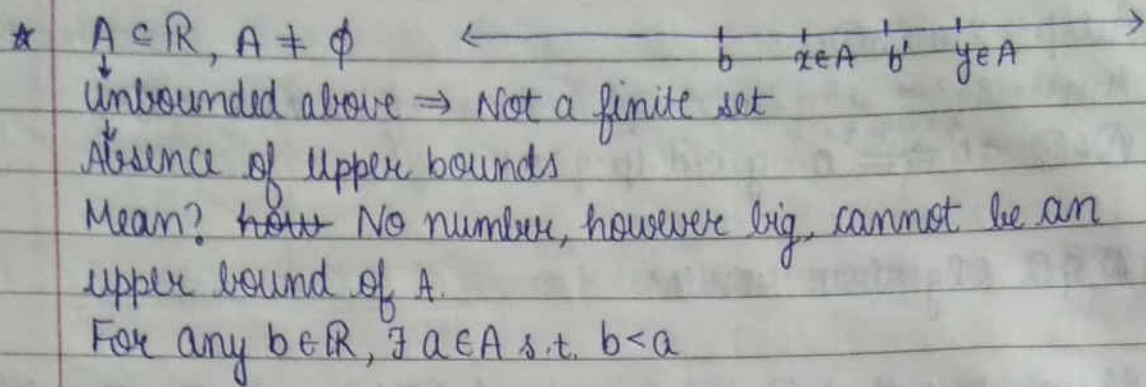 * A ⊂ ℝ, A ≠ ϕ
b x∈A b' y∈A
Unbounded above ⇒ Not a finite set
Absence of upper bounds
Mean? how No number, however big, cannot be an
upper bound of A.
For any b∈ℝ, ∃ a∈A s.t. b<a